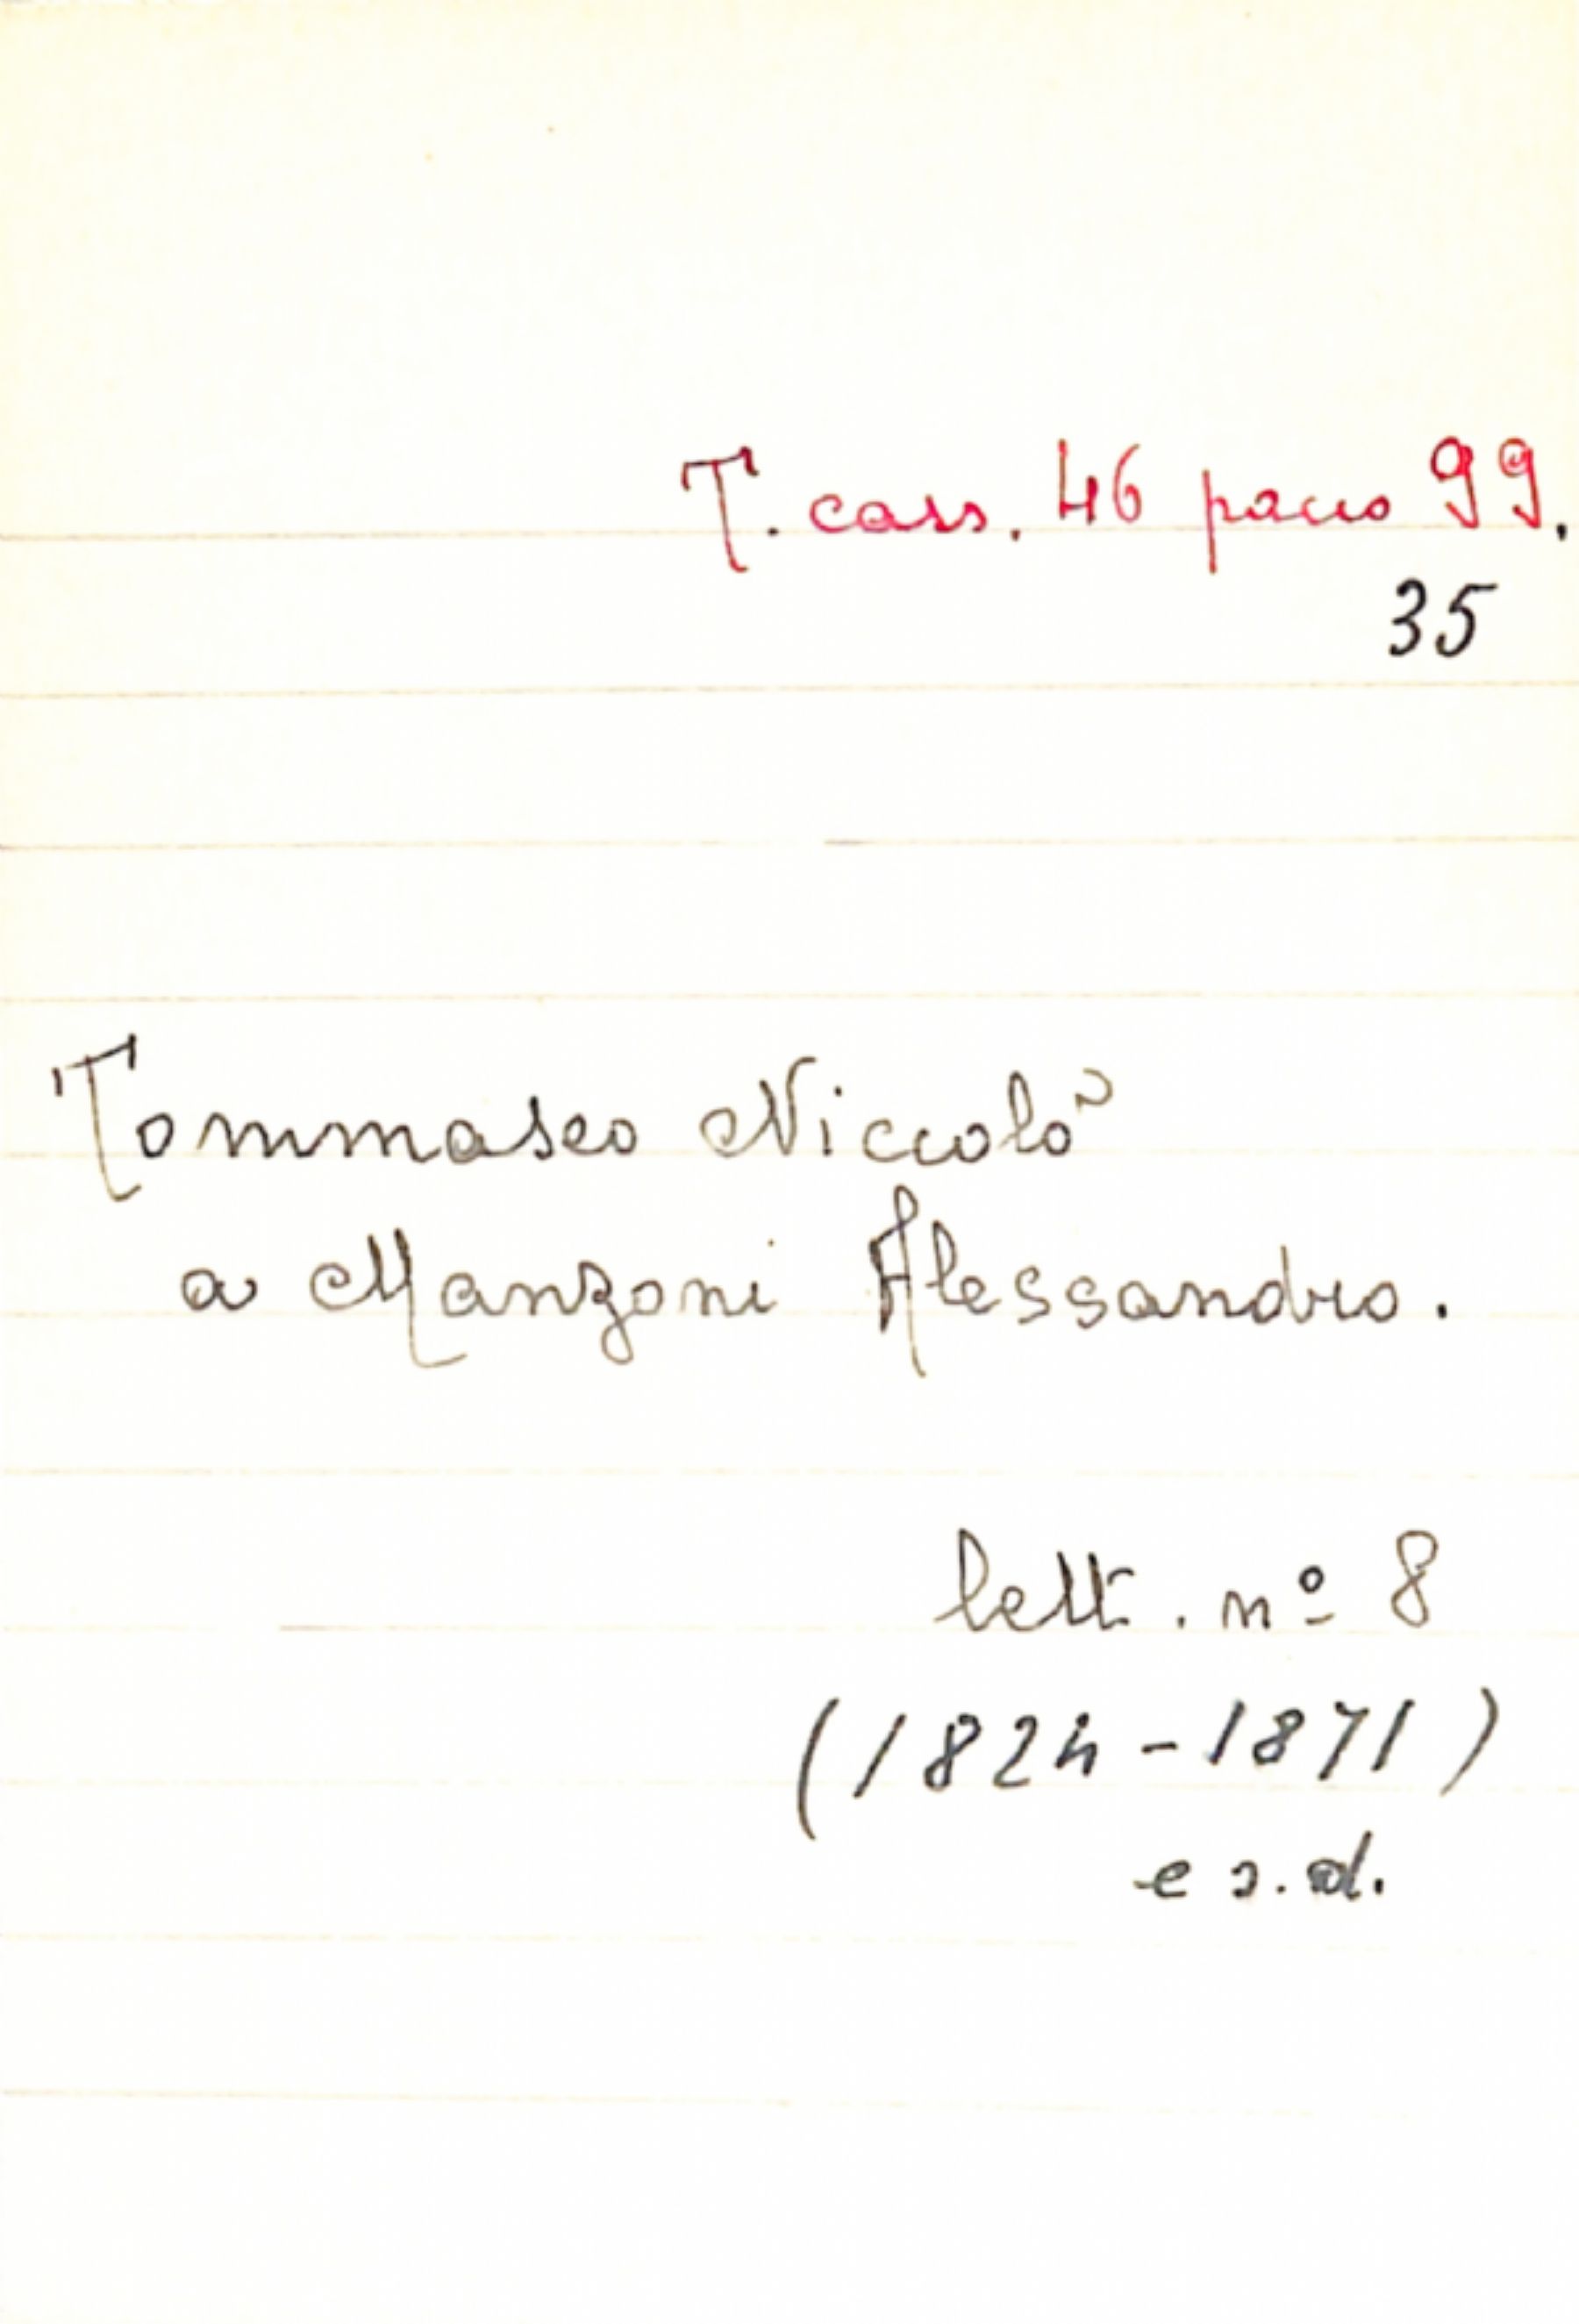 T. cass. 46 pacco 99.
35
Tommaseo Niccolò
a Manzoni Alessandro.
lett. nº 8
(1824-1871)
e s.d.